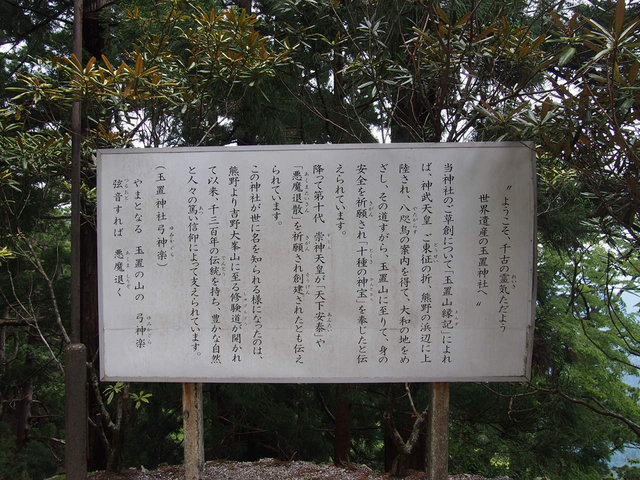 〝ようこそ、千古の霊気ただよう
世界遺産の玉置神社へ〟
当神社のご草創について「玉置山縁記」によれ
ば、神武天皇ご東征の折、熊野の浜辺に上
陸され、八咫烏の案内を得て、大和の地をめ
ざし、その道すがら、玉置山に至りて、身の
安全を祈願され「十種の神宝」を奉じたと伝
えられています。
降って第十代　崇神天皇が「天下安泰」や
「悪魔退散」を祈願され創建されたとも伝え
られています。
この神社が世に名を知られる様になったのは、
熊野より吉野大峯山に至る修験道が開かれ
て以来、千三百年の伝統を持ち、豊かな自然
と人々の篤い信仰によって支えられています。
（玉置神社弓神楽）
やまとなる　玉置の山の　弓神楽
弦音すれば　悪魔退く